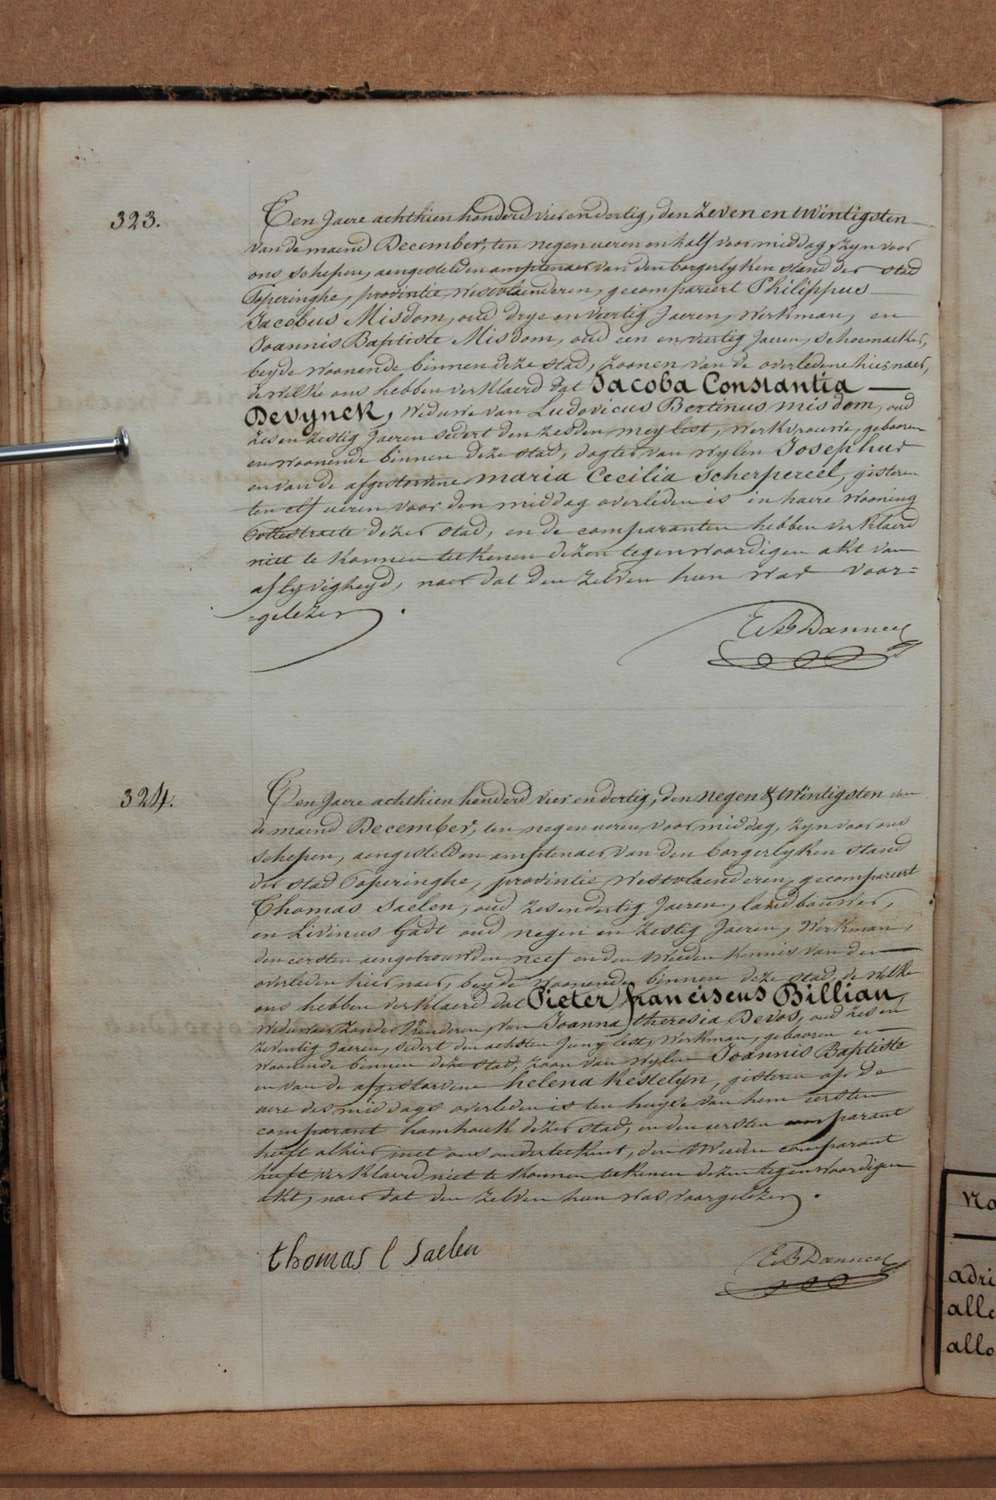 323.
Een Jaere achthien honderd vier en dertig, den zeven en twintigsten
van de maend December, ten negen ueren en half voor middag zyn voor
ons schepen, aengestelden amptenaer van den borgerlyken stand der stad
Poperinghe, provintie westvlaenderen, gecompareert Philippus
Jacobus Misdom, oud drye en veertig Jaeren, werkman, en
Joannis Baptiste Misdom, oud een en veertig Jaeren, schoemaeker,
beyde woonende binnen deze stad, zoonen van de overledene hier naer,
dewelke ons hebben verklaerd dat Jacoba Constantia
Devynck, weduwe van Ludovicus Bertinus misdom, oud
zes en zestig Jaeren sedert den zesden mey lest, werkvrouwe, gebooren
en woonende binnen deze stad, dogter van wylen Josephus
en van de afgestorvene maria Cecilia Scherpereel, gisteren
ten elf ueren voor den middag overleden is in haere wooning
Pottestraete dezer stad, en de comparanten hebben verklaerd
niet te konnen teekenen dezen tegenwoordigen akt van
aflyvigheyd, naer dat den zelven hun was voor=
=gelezen.
324.
Een Jaere achthien honderd vier en dertig, den negen & twintigsten van
de maend December, ten negen ueren voor middag, zyn voor ons
schepen, aengestelden amptenaer van den borgerlyken stand
der stad Poperinghe, provintie westvlaenderen, gecompareert
Thomas Saelen, oud zes en dertig Jaeren, landbouwer,
en Livinus Gadt oud negen en zestig Jaeren, werkman,
den eersten aengetrouwden neef en den tweeden kennis van den
overleden hier naer, beyde woonende binnen deze stad, de welke
ons hebben verklaerd dat Pieter franciscus Billiau,
weduwaer zonder kinderen, van Joanna theresia Devos, oud zes en
zeventig Jaeren, sedert den achsten Juny lest, werkman, gebooren en
woonende binnen deze stad, zoon van wylen Joannis Baptiste
en van de afgestorvene helena kestelyn, gisteren op de
uere des middags overleden is ten huyse van hem eersten
comparant hamhoek dezer stad, en den eersten comparant
heeft alhier met ons onderteekent, den tweeden comparant
heeft verklaerd niet te konnen teekenen dezen tegenwoordigen
akt, naer dat den zelven hun was voorgelezen.
thomas C Saelen
No
adri
alle
allo